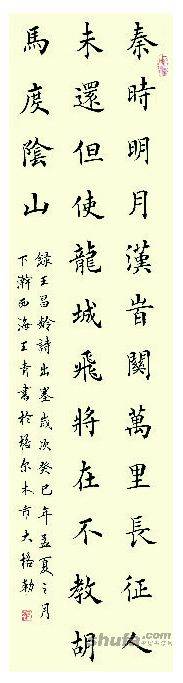 秦時明月漢旹關萬里長征人
未還但使龍城飛將在不教胡
馬度陰山
錄王昌齡詩出塞歲次癸巳年孟夏之月
下澣西海王青書於格尔木市大格勒